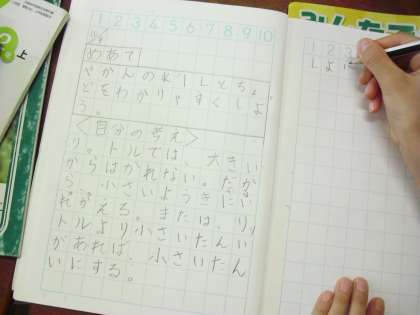 1 2 3 4 5 6 7 8 9 10
めあて
やかんの水1Lとちょ
とをわかりやすくしよ
う。
＜自分の考え＞
リットルでは、大きい
からはかれない。だか
ら、小さいようきにい
れかえる。または、リッ
トルより小さいたんい
があれば、小さいたん
いにする。
上
みんな
1 2 3
しょ